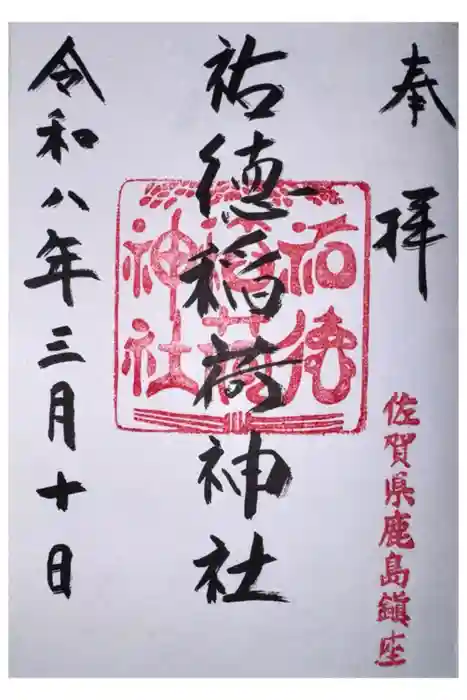 奉拝
佐賀県鹿島鎮座
祐徳稲荷神社
祐徳
稲荷
神社
令和八年三月十日